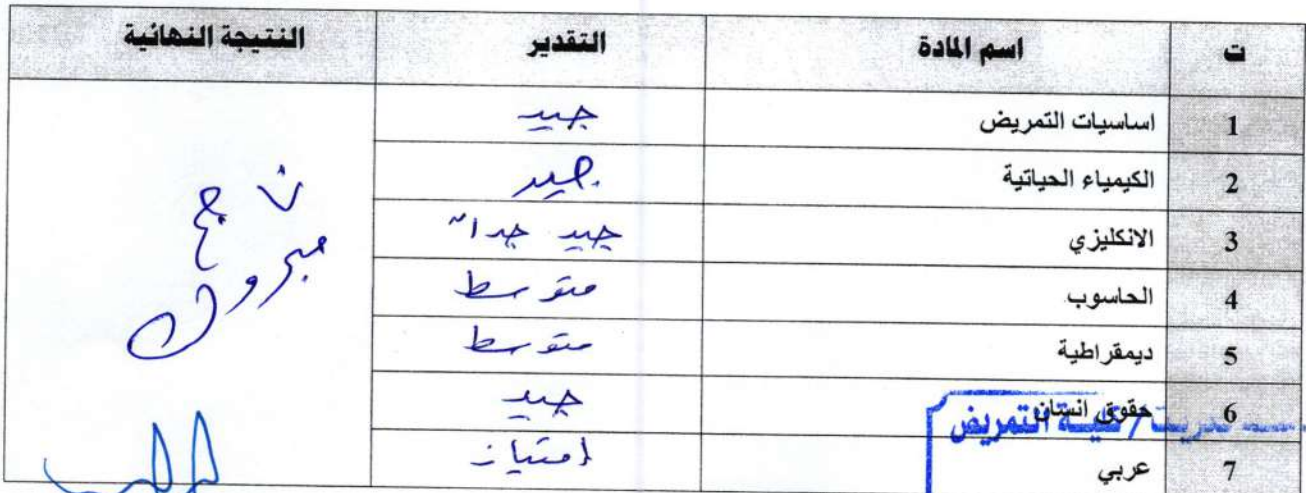 ت اسم المادة التقدير النتيجة النهائية
1 اساسيات التمريض جيد
2 الكيمياء الحياتية جيد
3 الانكليزي جيد جداً
4 الحاسوب متوسط
5 ديمقراطية متوسط
6 حقوق انسان جيد
7 عربي امتياز
ناجح
مبروك
كلية التمريض